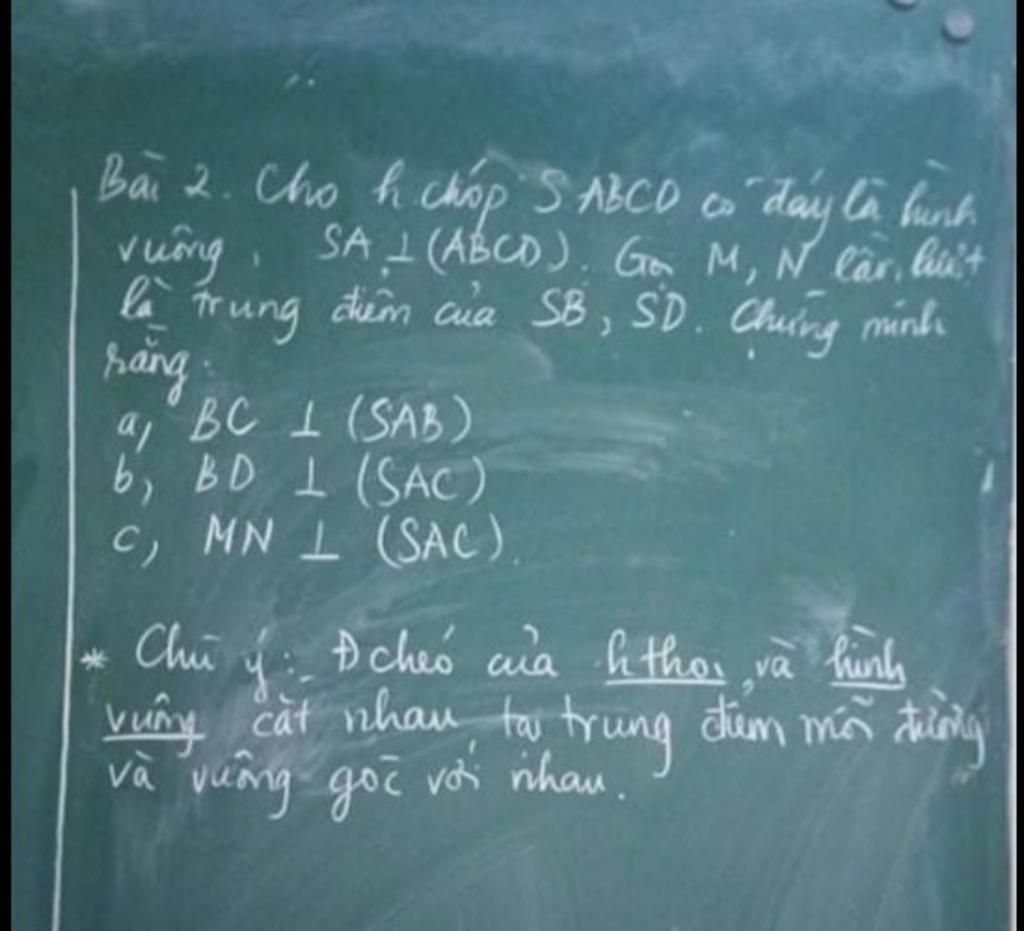 Bài 2. Cho h chóp S ABCD có đáy là hình
vuông, SA ⊥ (ABCD). Gọi M, N lần lượt
là trung điểm của SB, SD. Chứng minh
rằng.
a, BC ⊥ (SAB)
b, BD ⊥ (SAC)
c, MN ⊥ (SAC).
* Chú ý: Đ chéo của h thoi và hình
vuông cắt nhau tại trung điểm mỗi đường
và vuông góc với nhau.